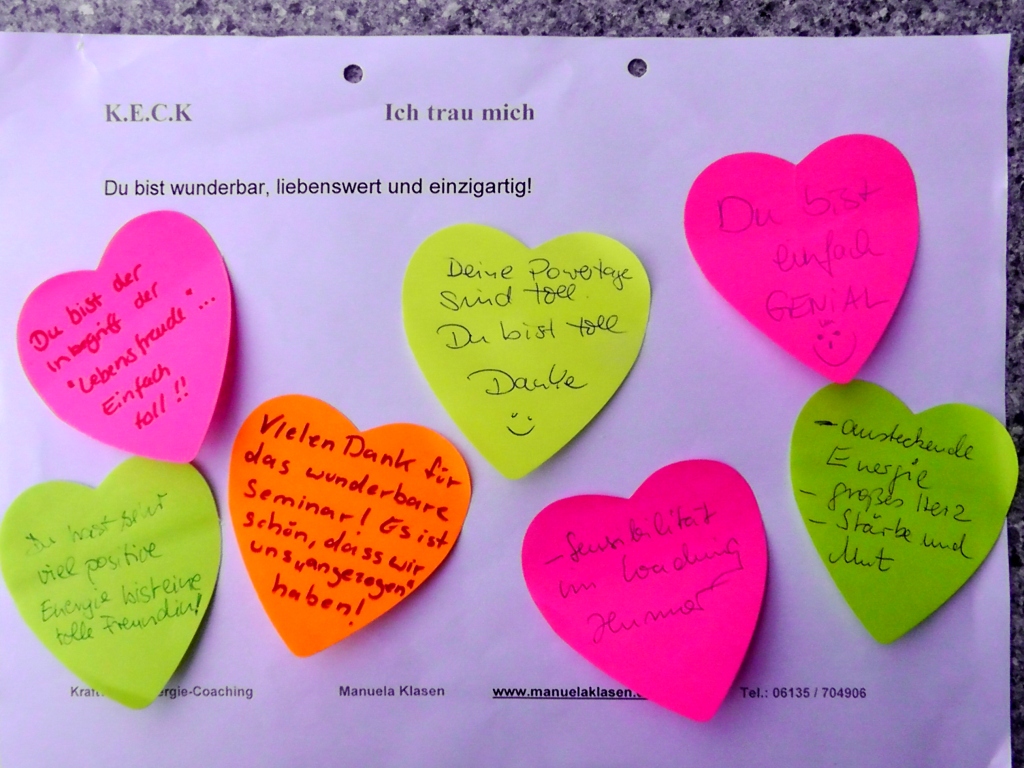 K.E.C.K Ich trau mich
Du bist wunderbar, liebenswert und einzigartig!
Du bist der
Inbegriff der
"Lebensfreude"...
Einfach
toll!!
Deine Powertage
sind toll
Du bist toll
Danke
Du bist
einfach
GENIAL
Du hast sehr
viel positive
Energie bist eine
tolle Freundin!
Vielen Dank für
das wunderbare
Seminar! Es ist
schön, dass wir
uns „angezogen"
haben!
- Sensibilität
im Coaching
Humor
- ansteckende
Energie
- großes Herz
- Stärke und
Mut
ergie-Coaching Manuela Klasen www.manuelaklasen. Tel.: 06135 / 704906